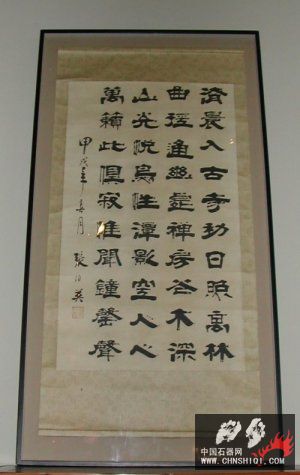 清晨入古寺初日照高林
曲徑通幽處禪房花木深
山光悦鳥性潭影空人心
萬籟此俱寂惟聞鐘磬聲
甲戌年春月 張伯英
中国石器网
WWW.CHNSHIQI.COM